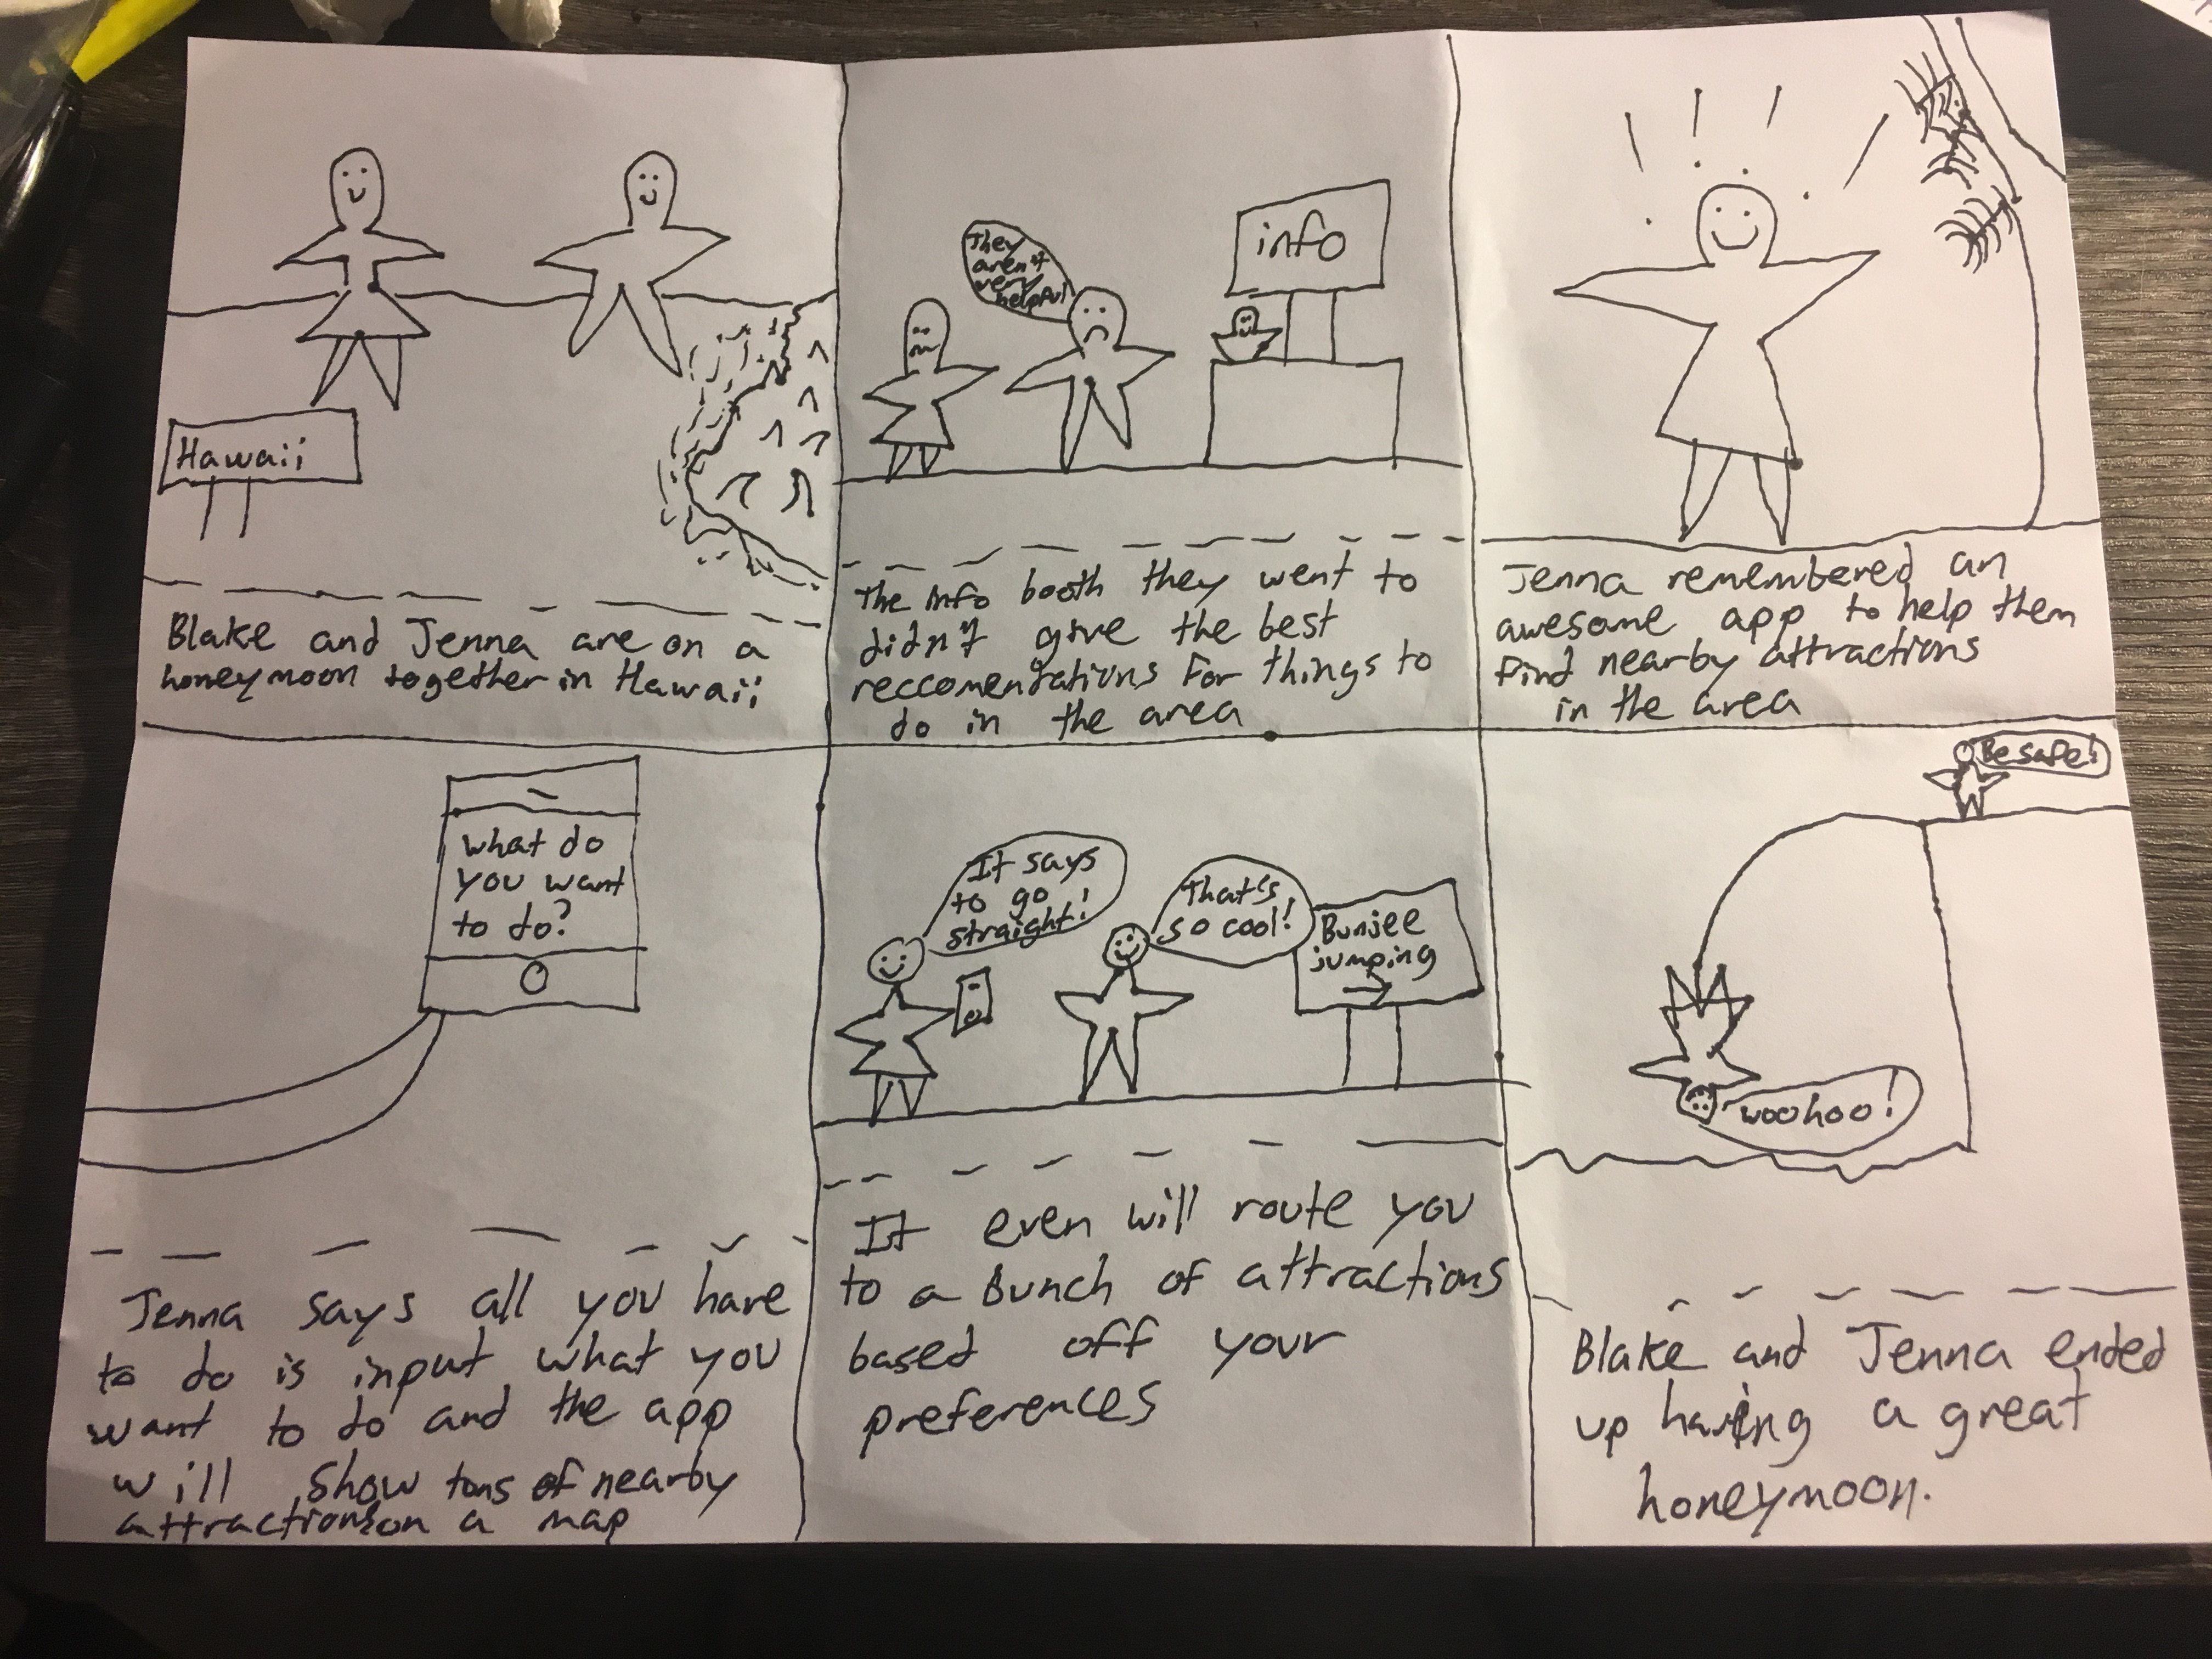 Hawaii
Blake and Jenna are on a
honeymoon together in Hawaii
They
aren't
very
helpful
info
The info booth they went to
didn't give the best
reccomendations for things to
do in the area
Jenna remembered an
awesome app to help them
find nearby attractions
in the area
What do
you want
to do?
Jenna says all you have
to do is input what you
want to do and the app
will show tons of nearby
attractions on a map
It says
to go
straight!
That's
so cool!
Bunjee
jumping
It even will route you
to a Bunch of attractions
based off your
preferences
Be safe!
woohoo!
Blake and Jenna ended
up having a great
honeymoon.